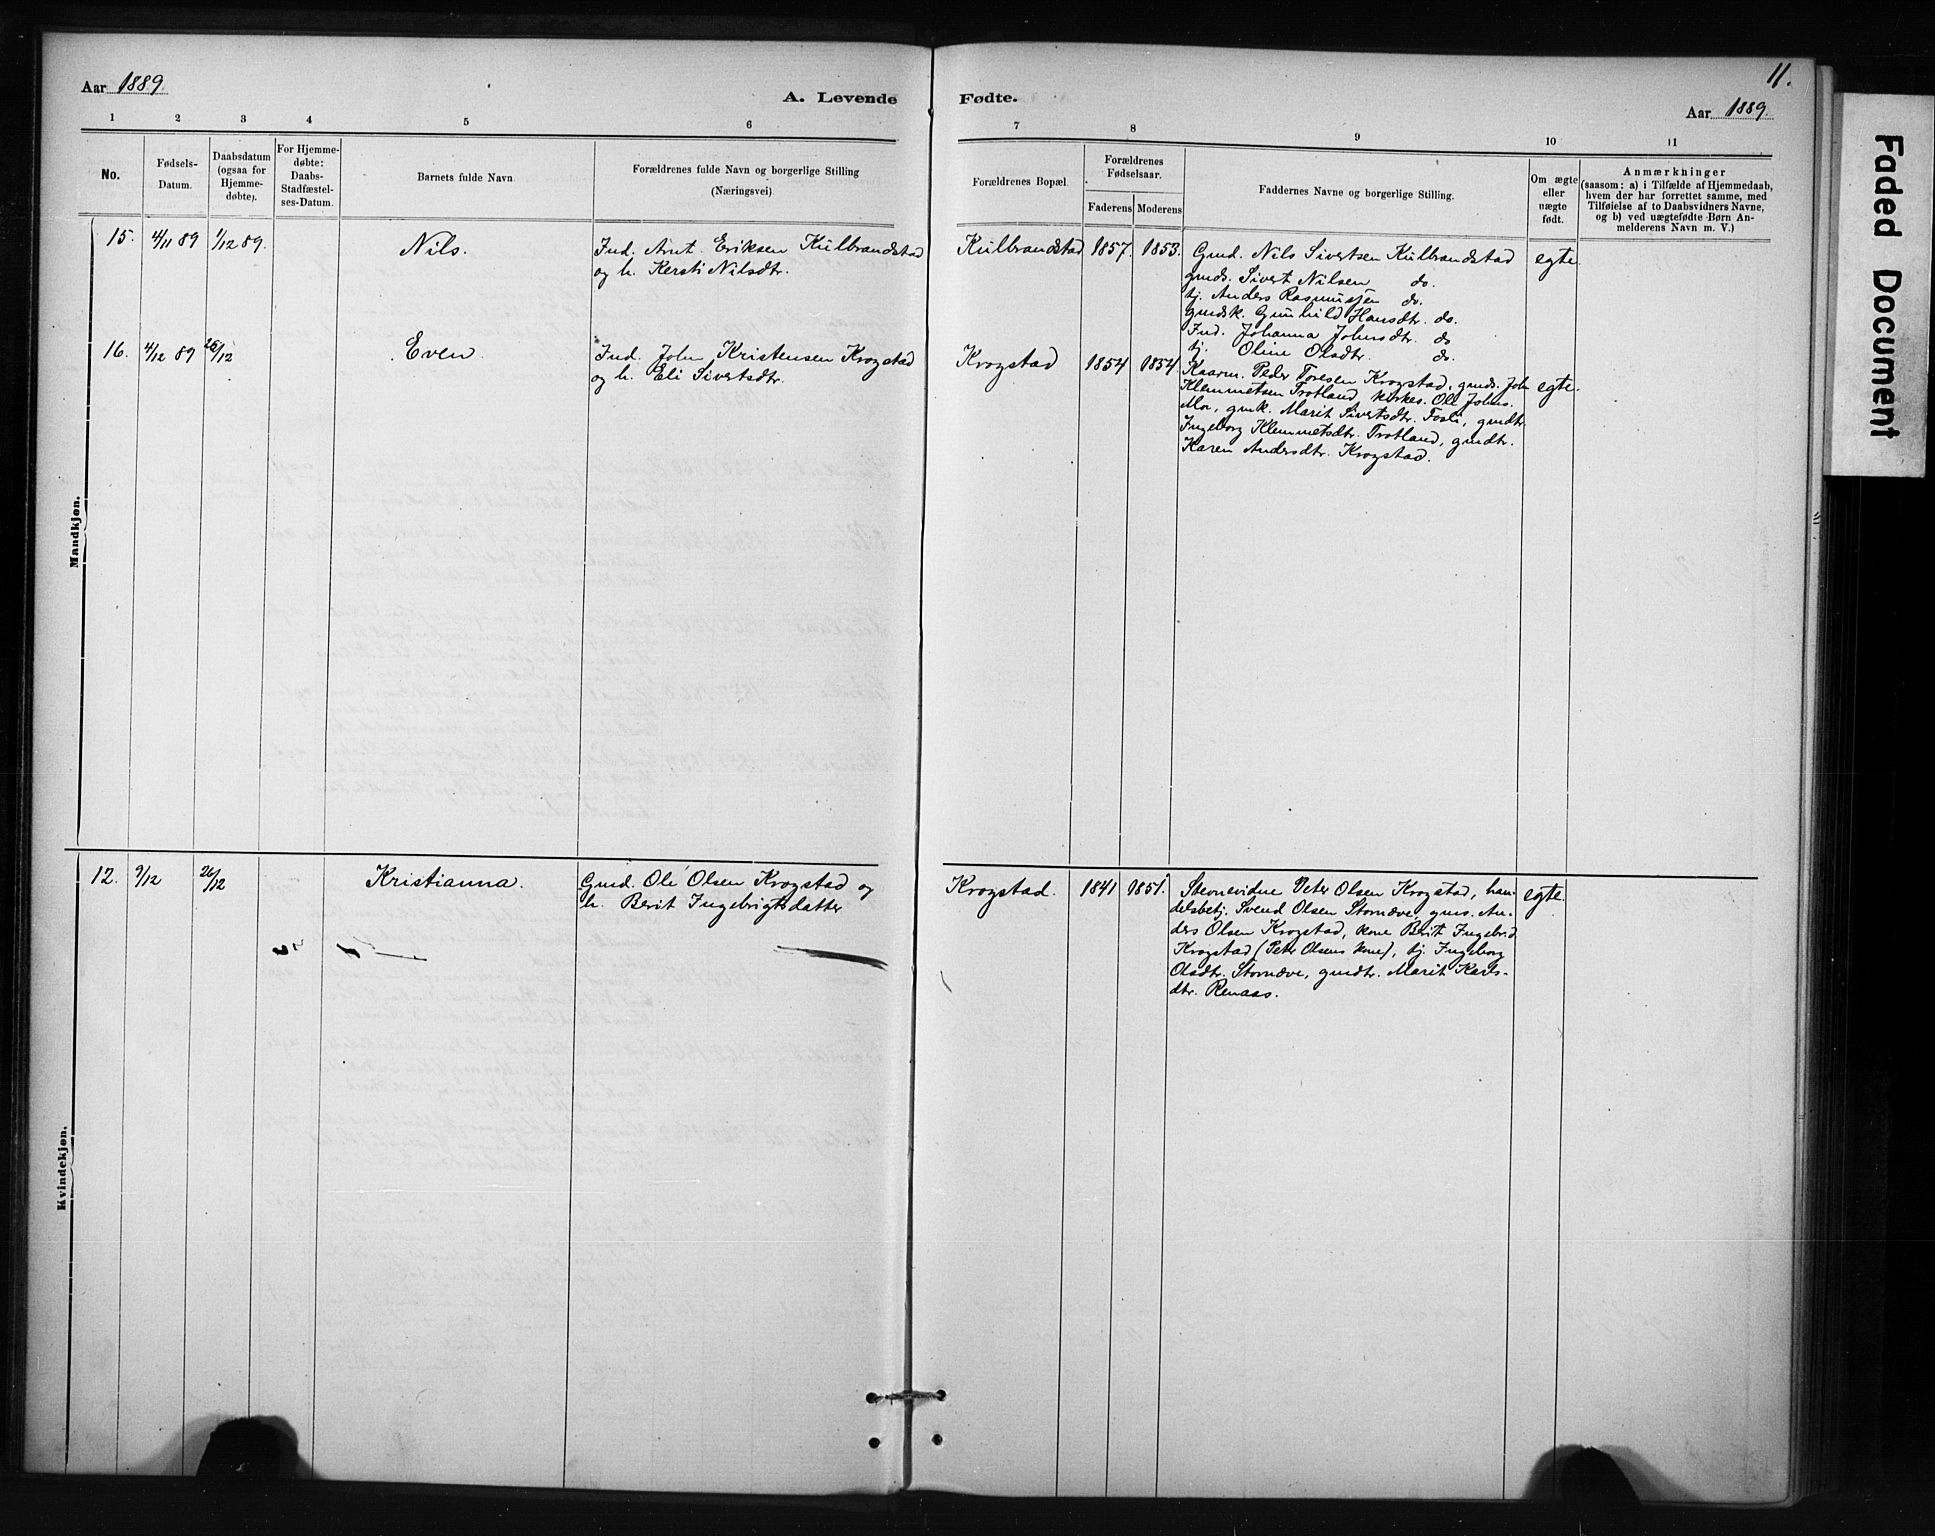 11.
Aar 1889.
A. Levende Fødte.
Aar 1889.
1 2 3 4 5 6 7 8 9 10 11
No.
Fødsels-
Datum.
Daabsdatum
(ogsaa for
Hjemme-
døbte).
For Hjemme-
døbte:
Daabs-
Stadfæstel-
ses-Datum.
Barnets fulde Navn
Forældrenes fulde Navn og borgerlige Stilling
(Næringsvei)
Forældrenes Bopæl.
Forældrenes
Fødselsaar.
Faderens Moderens
Faddernes Navne og borgerlige Stilling.
Om ægte
eller
uægte
født.
Anmærkninger
(saasom: a) i Tilfælde af Hjemmedaab,
hvem der har forrettet samme, med
Tilføielse af to Daabsvidners Navne,
og b) ved uægtefødte Børn An-
melderens Navn m. V.)
Mandkjøn.
15. 4/11 89 1/12 89. Nils.
Ind. Arnt Eriksen Kulbrandstad
og h. Kersti Nilsdtr.
Kulbrandstad 1857. 1853.
Gmd. Nils Sivertsen Kulbrandstad
gmds. Sivert Nilsen do.
tj. Anders Rasmussen do.
gmdsk. Gunhild Hansdtr. do.
Ind. Johanna Johnsdtr. do
tj. Oline Olsdtr. do.
egte.
16. 4/12 89 26/12 Even.
Ind. John Kristensen Krogstad
og h. Eli Sivertsdtr.
Krogstad 1854 1854.
Kaarm. Peder Toresen Krogstad, gmds. John
Klemmetsen Trotland, kirkes. Ole Johns.
Mo, gmk. Marit Sivertsdtr. Fosli, gmdtr.
Ingeborg Klemmetsdtr. Trotland, gmdtr.
Karen Andersdtr. Krogstad.
egte.
Kvindekjøn.
12. 9/12 26/12 Kristianna.
Gmd. Ole Olsen Krogstad og
h. Berit Ingebrigtsdatter
Krogstad. 1841 1851.
Stevnevidne Peter Olsen Krogstad, han-
delsbetj. Svend Olsen Størnæve, gms. An-
ders Olsen Krogstad, kone Berit Ingebr.d.
Krogstad (Peter Olsens kone), tj. Ingeborg
Olsdtr. Størnæve, gmdtr. Marit Karls-
dtr. Renaas.
egte.
Faded Document